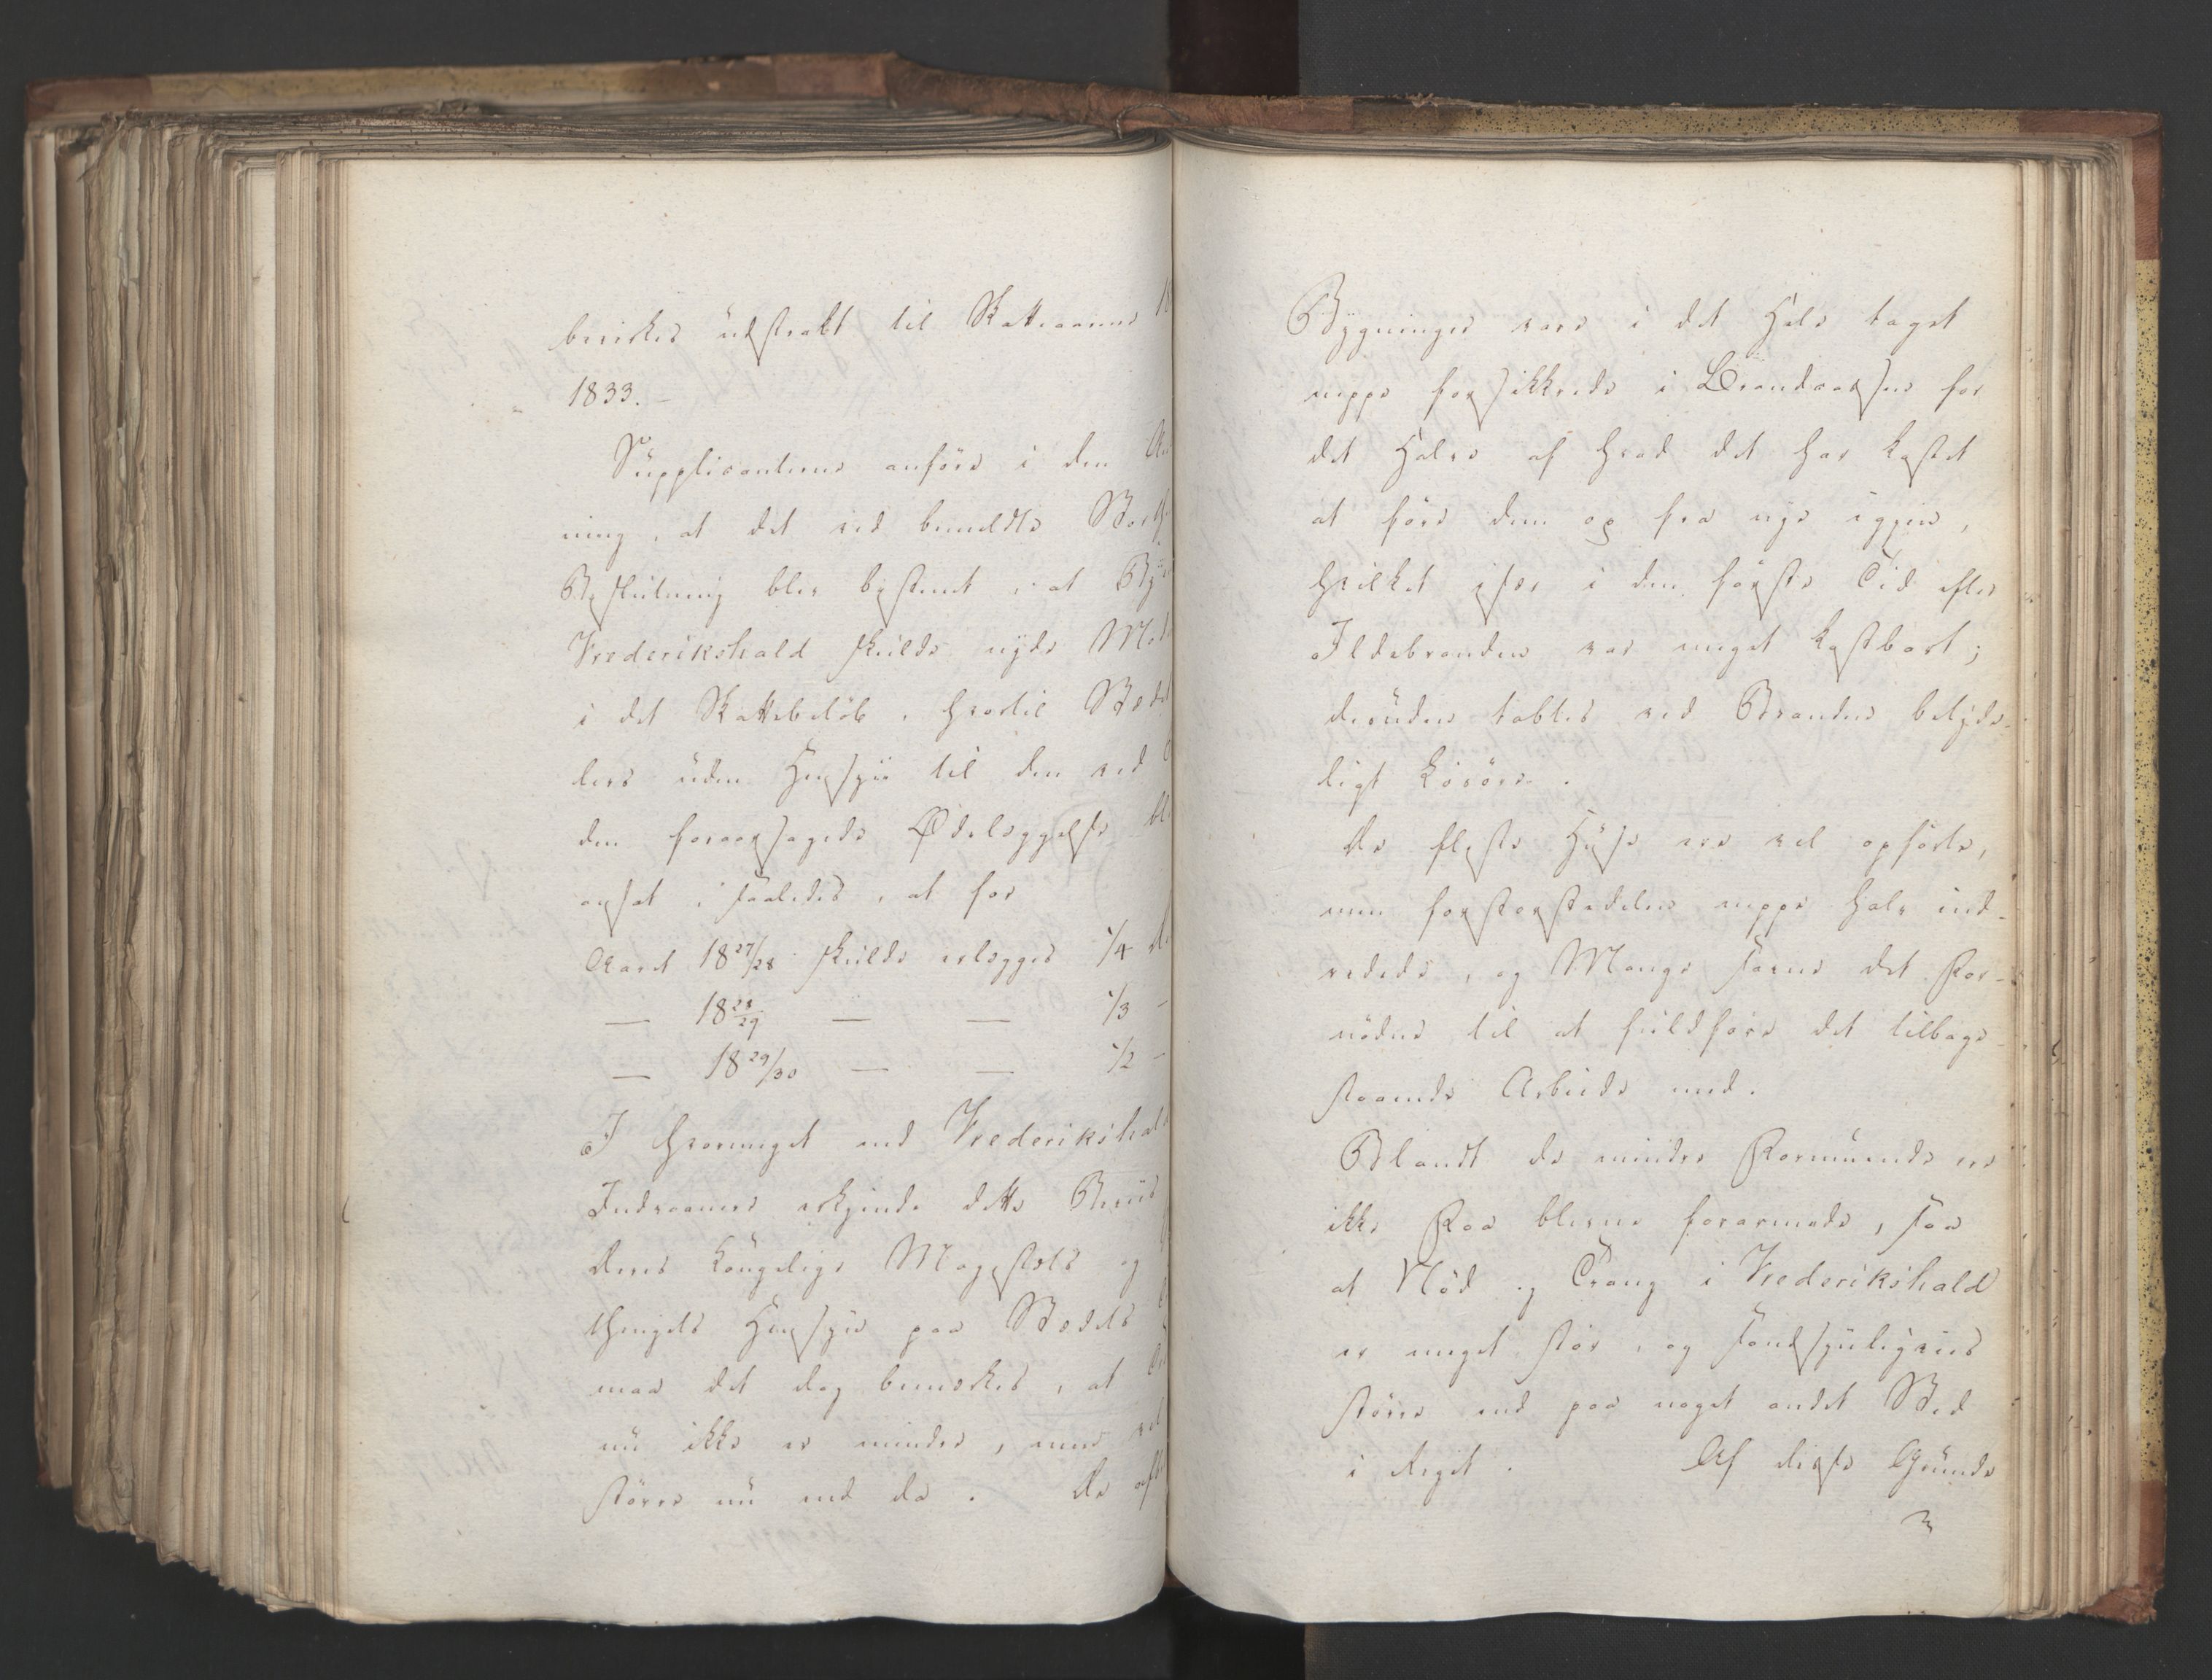 bevirkes udstrakt til Skatteaarene
1833.
Supplicanterne anføre i den
ning, at det ved bemeldte
Beslutning blev bestemt, at
Frederikshald skulde nyde
i det Skattebeløb, hvortil
ders uden Hensyn til den ved
den foraarsagede Ødelæggelse
ansat, saaledes, at for
Aaret 18 27/28 skulde erlægges 1/4
— 18 28/29 — — 1/3 —
— 18 29/30 — — 1/2 —
I hvormeget end Frederikshalds
Indvaanere erkjende dette
Deres Kongelige Majestæts og
thingets Hensyn paa Stedets
maa det dog bemærkes, at
nu ikke er mindre, men vel
større nu end da. De
Bygninger vare i det Hele taget
neppe forsikkrede i Brandcassen for
det Halve af hvad det har kostet
at føre dem op fra nye igjen,
hvilket især i den første Tid efter
Ildebranden var meget kostbart;
desuden tabtes ved Branden betyde-
ligt Løsøre.
De fleste Huse ere vel opførte,
men for størstedelen neppe halv ind-
redede, og Mange savne det For-
nødne til at fuldføre det tilbage-
staaende Arbeide med.
Blandt de mindre Formuende ere
ikke Faa blevne forarmede, saa
at Nød og Trang i Frederikshald
er meget stor, og sandsynligviis
større end paa noget andet Sted
i Riget. Af disse Grunde